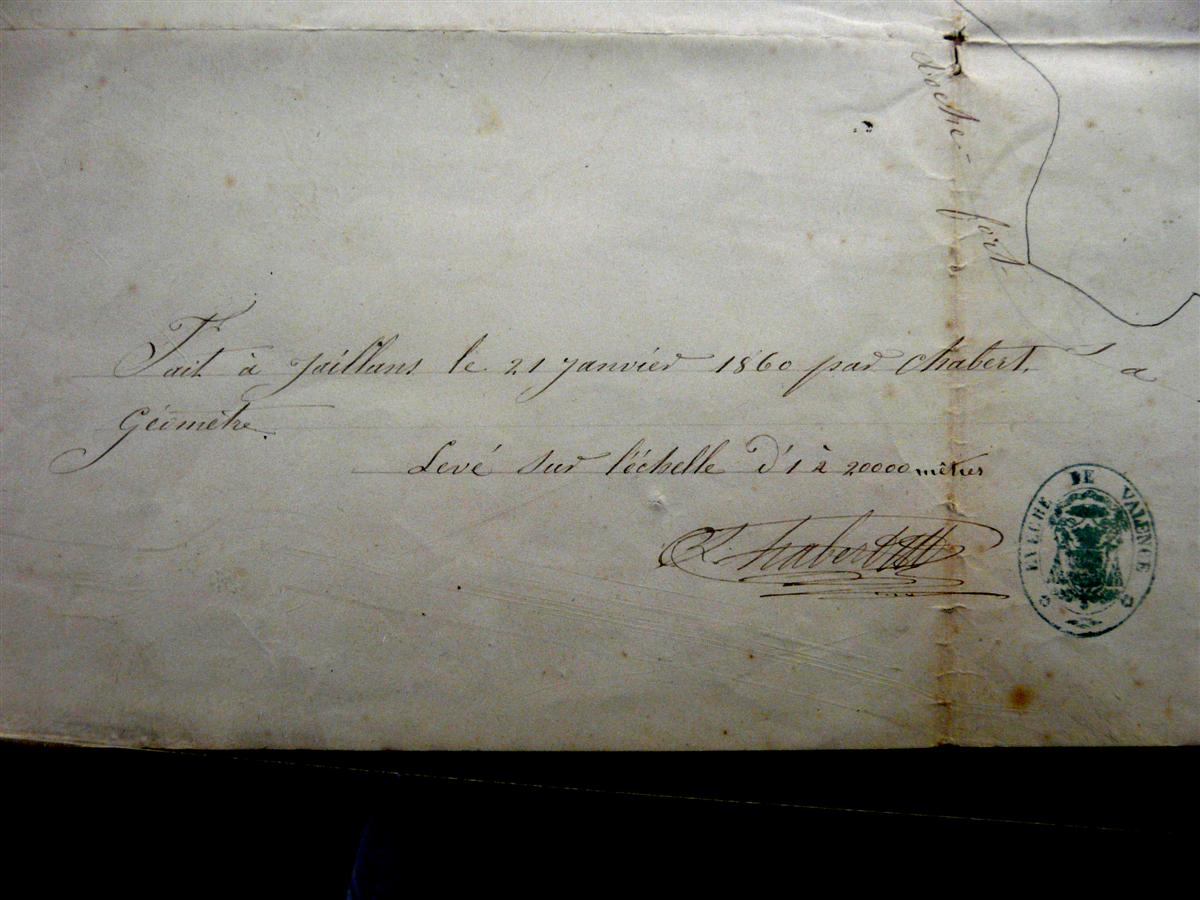 Roche-fort
Fait à Jaillans le 21 Janvier 1860 par Chabert.
a
Géomètre.
Levé sur l'échelle d'1 à 20000 mètres
Chabert
EVECHE DE VALENCE